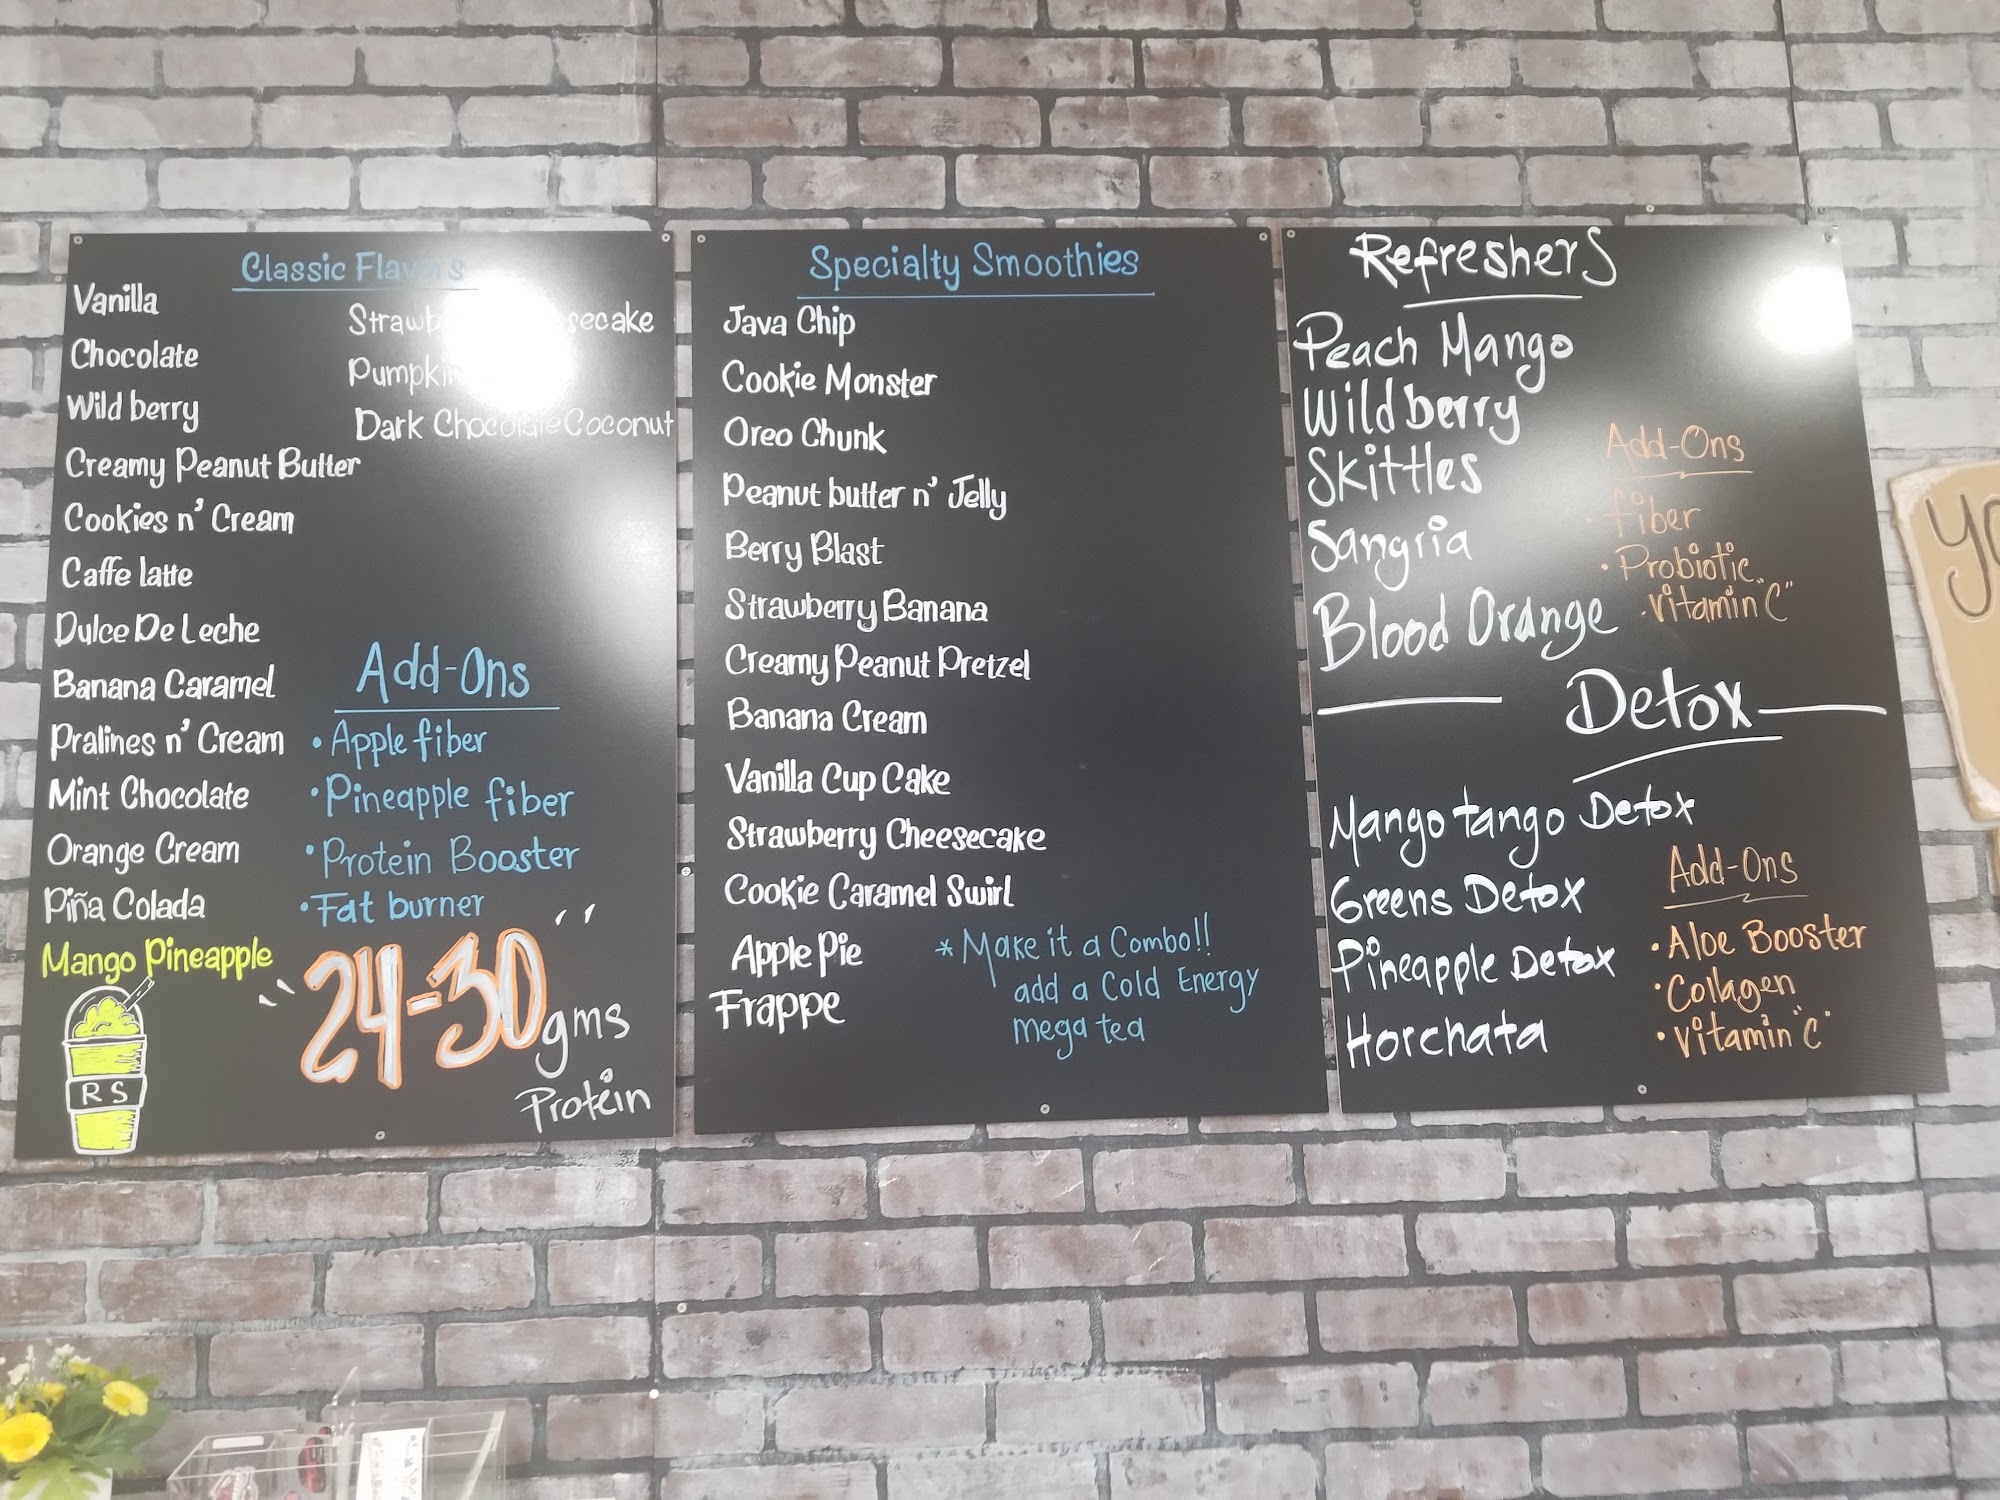 Classic Flavors
Vanilla
Chocolate
Wild berry
Creamy Peanut Butter
Cookies n' Cream
Caffe latte
Dulce De Leche
Banana Caramel
Pralines n' Cream
Mint Chocolate
Orange Cream
Piña Colada
Mango Pineapple
RS
Strawberry Cheesecake
Pumpkin
Dark Chocolate Coconut
Add-Ons
• Apple fiber
• Pineapple fiber
• Protein Booster
• Fat burner
"24-30"
gms
Protein
Specialty Smoothies
Java Chip
Cookie Monster
Oreo Chunk
Peanut butter n' Jelly
Berry Blast
Strawberry Banana
Creamy Peanut Pretzel
Banana Cream
Vanilla Cup Cake
Strawberry Cheesecake
Cookie Caramel Swirl
Apple Pie
Frappe
* Make it a Combo!!
add a Cold Energy
mega tea
Refreshers
Peach Mango
Wildberry
Skittles
Sangria
Blood Orange
Add-Ons
• fiber
• Probiotic
• Vitamin "C"
Detox
Mango tango Detox
Greens Detox
Pineapple Detox
Horchata
Add-Ons
• Aloe Booster
• Collagen
• Vitamin "C"